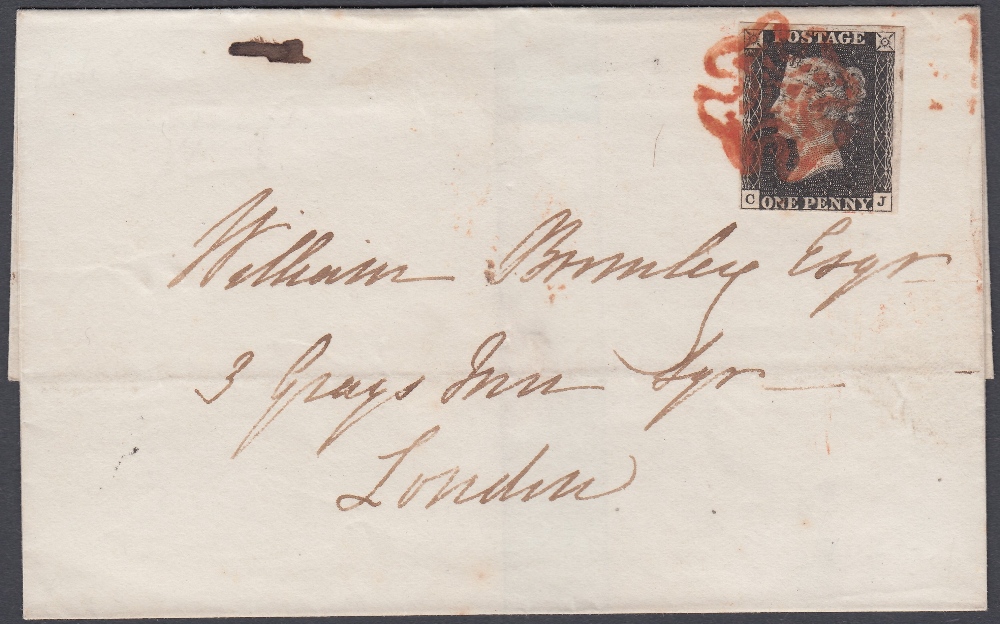 POSTAGE
C ONE PENNY. J
William Bromley Esqr
3 Grays Inn Sqr
London